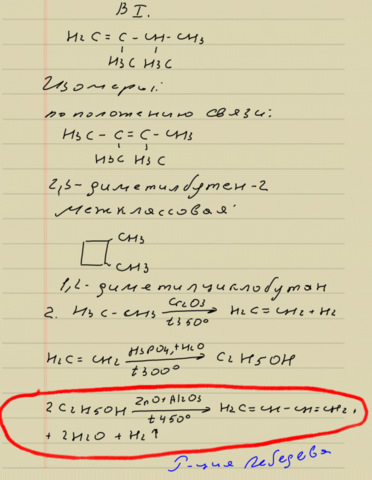 В I.
H₂C = C - CH - CH₃
H₃C H₃C
Изомеры:
положению связи:
H₃C - C = C - CH₃
H₃C H₃C
2,3-диметилбутен-2
Межклассовая:
CH₃
CH₃
1,2-диметилциклобутан
2. H₃C - CH₃ Cr₂O₃ t350° → H₂C = CH₂ + H₂
H₂C = CH₂ H₃PO₄, + H₂O t300° → C₂H₅OH
2 C₂H₅OH ZnO + Al₂O₃ t450° → H₂C = CH - CH = CH₂ +
+ 2H₂O + H₂↑
Р-ция Лебедева